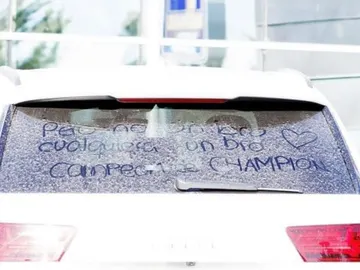 Pero no un bro ♡
cualquiera un bro
campeón CHAMPION